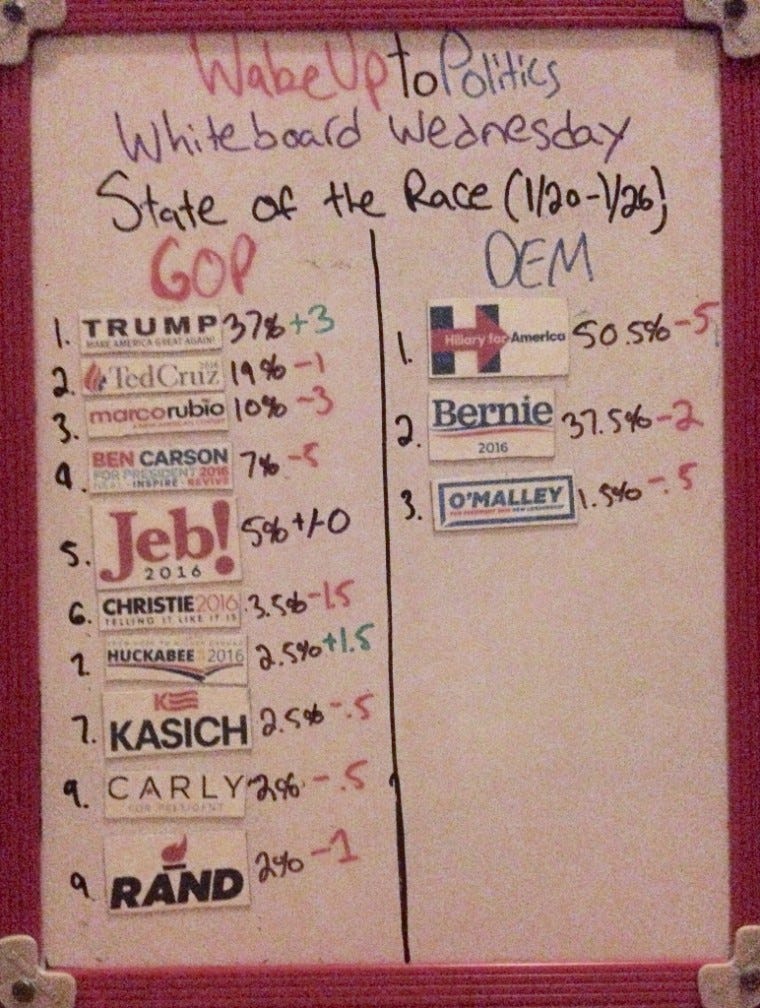 WakeUp to Politics
Whiteboard Wednesday
State of the Race (1/20-1/26)
GOP
1. TRUMP 37% +3
MAKE AMERICA GREAT AGAIN!
2. Ted Cruz 19% -1
3. marco rubio 10% -3
A NEW AMERICAN CENTURY
4. BEN CARSON 7% -5
FOR PRESIDENT 2016
HEAL · INSPIRE · REVIVE
5. Jeb! 5% +/-0
2016
6. CHRISTIE 2016 3.5% -1.5
TELLING IT LIKE IT IS
7. HUCKABEE 2016 2.5% +1.5
7. K
KASICH 2.5% -.5
9. CARLY 2% -.5
FOR PRESIDENT
9 RAND 2% -1
DEM
1. H Hillary for America 50.5% -5
2. Bernie 37.5% -2
2016
3. O'MALLEY 1.5% -.5